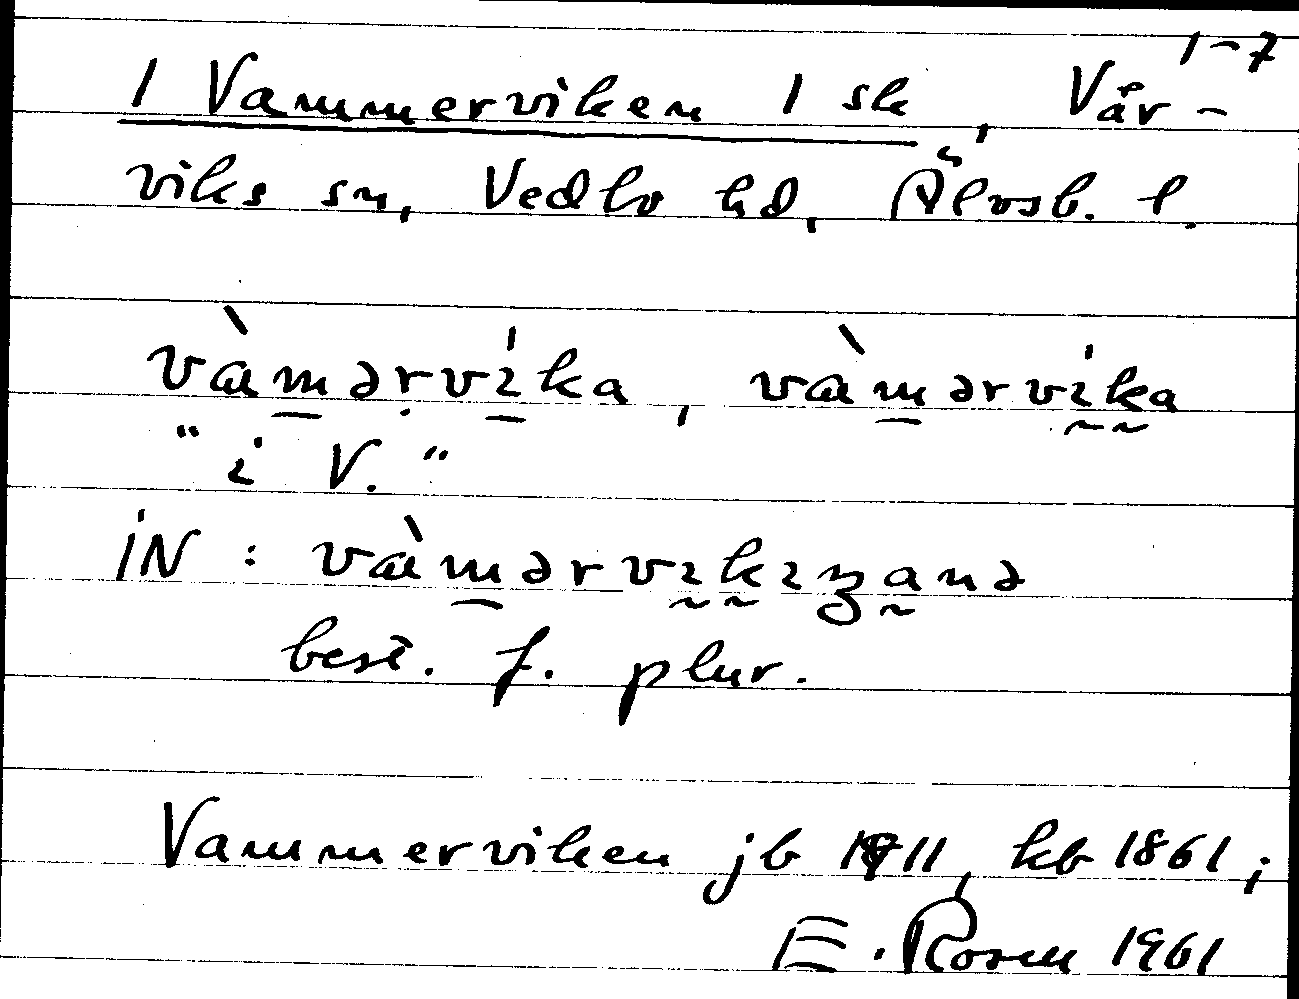 1-7
1 Vammerviken 1 sk, Vår-
viks sn, Vedbo hd, Älvsb. l.
vàmərvíka, vàmərvíka
"i V."
iN: vàmərvıkıŋanə
best. f. plur.
Vammerviken jb 1911, kb 1861;
E. Rosen 1961